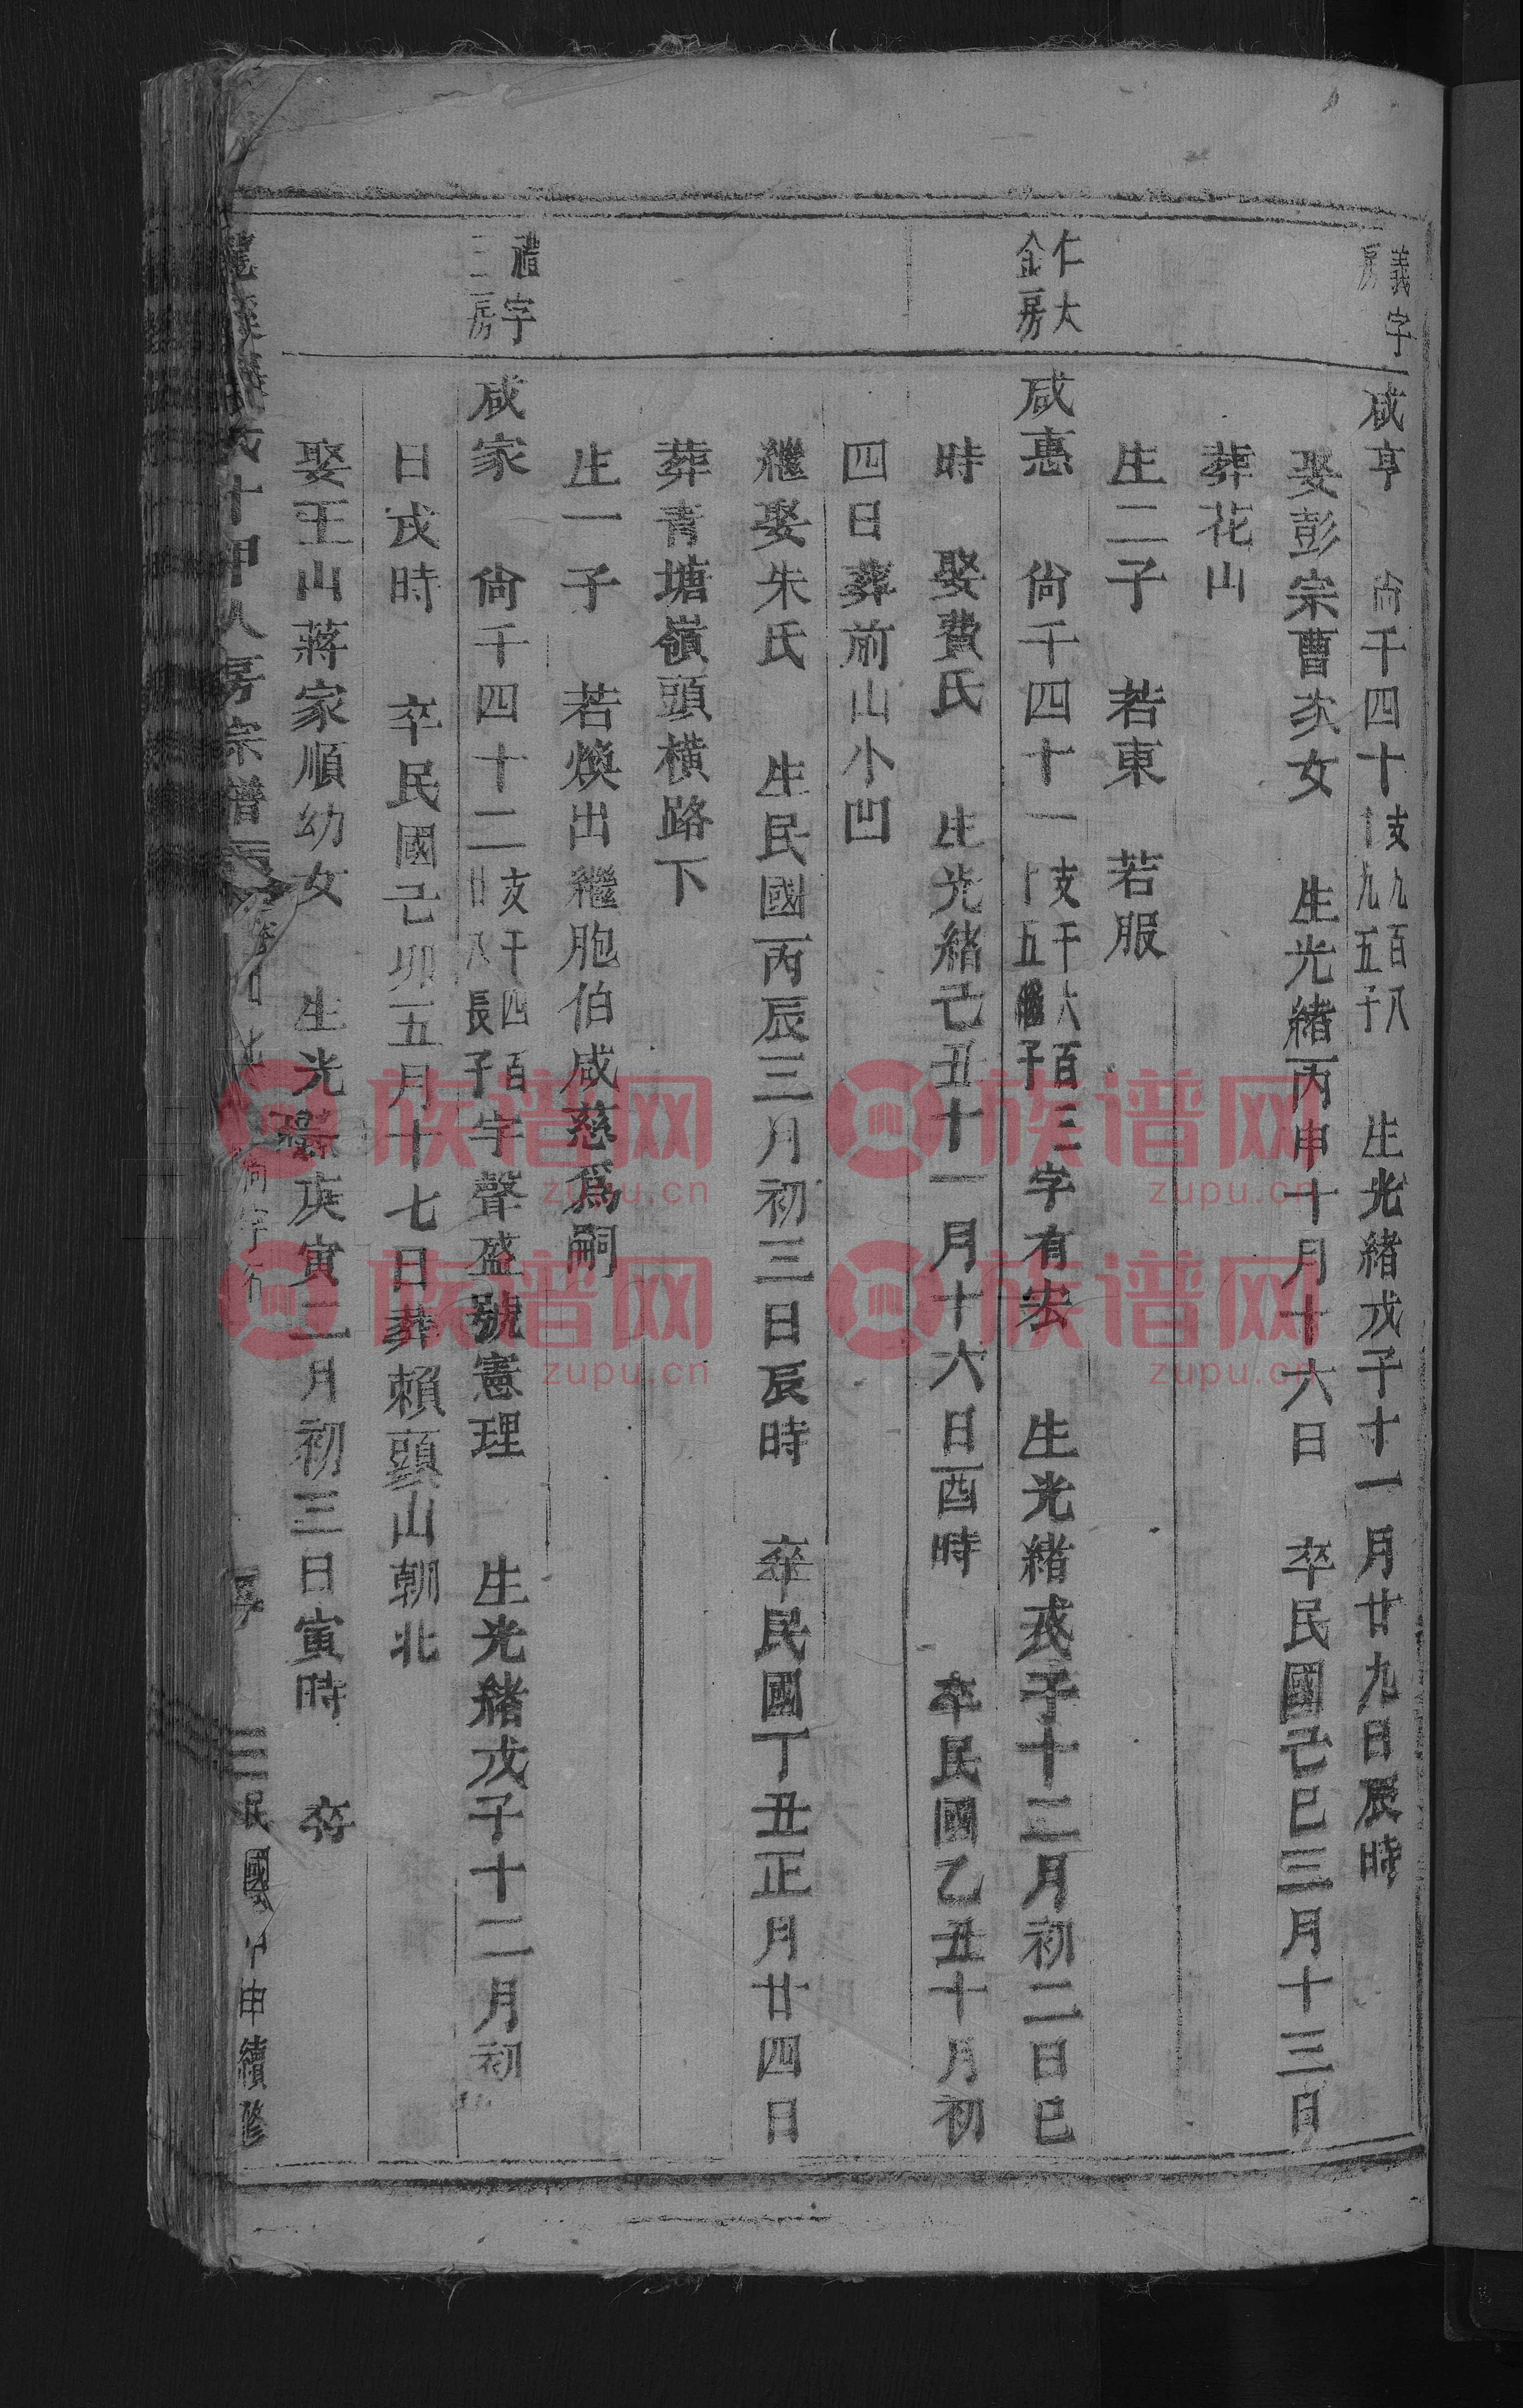 義字
房
咸亨 尙千四十 支九百八
十九五子 生光緒戊子十一月廿九日辰時
娶彭宗曹次女 生光緒丙申十月十六日 卒民國己巳三月十三日
葬花山
生二子 若東 若服
仁大
金房
咸惠 尙千四十一 支千六百三
十五繼子 字有宏 生光緒戊子十二月初二日巳
時 娶費氏 生光緒己丑十一月十六日酉時 卒民國乙丑十月初
四日葬前山小凹
繼娶朱氏 生民國丙辰三月初三日辰時 卒民國丁丑正月廿四日
葬青塘嶺頭橫路下
生一子 若煥出繼胞伯咸慈爲嗣
禮字
三房
咸家 尙千四十二 支千四百
廿八長子 字聲盛號憲理 生光緒戊子十二月初
日戌時 卒民國己卯五月十七日葬賴頭山朝北
娶王山蔣家順幼女 生光緒庚寅二月初三日寅時 卒
氏十甲人房宗譜
尙字行
三 民國甲申續修
族谱网
zupu.cn
族谱网
zupu.cn
族谱网
zupu.cn
族谱网
zupu.cn